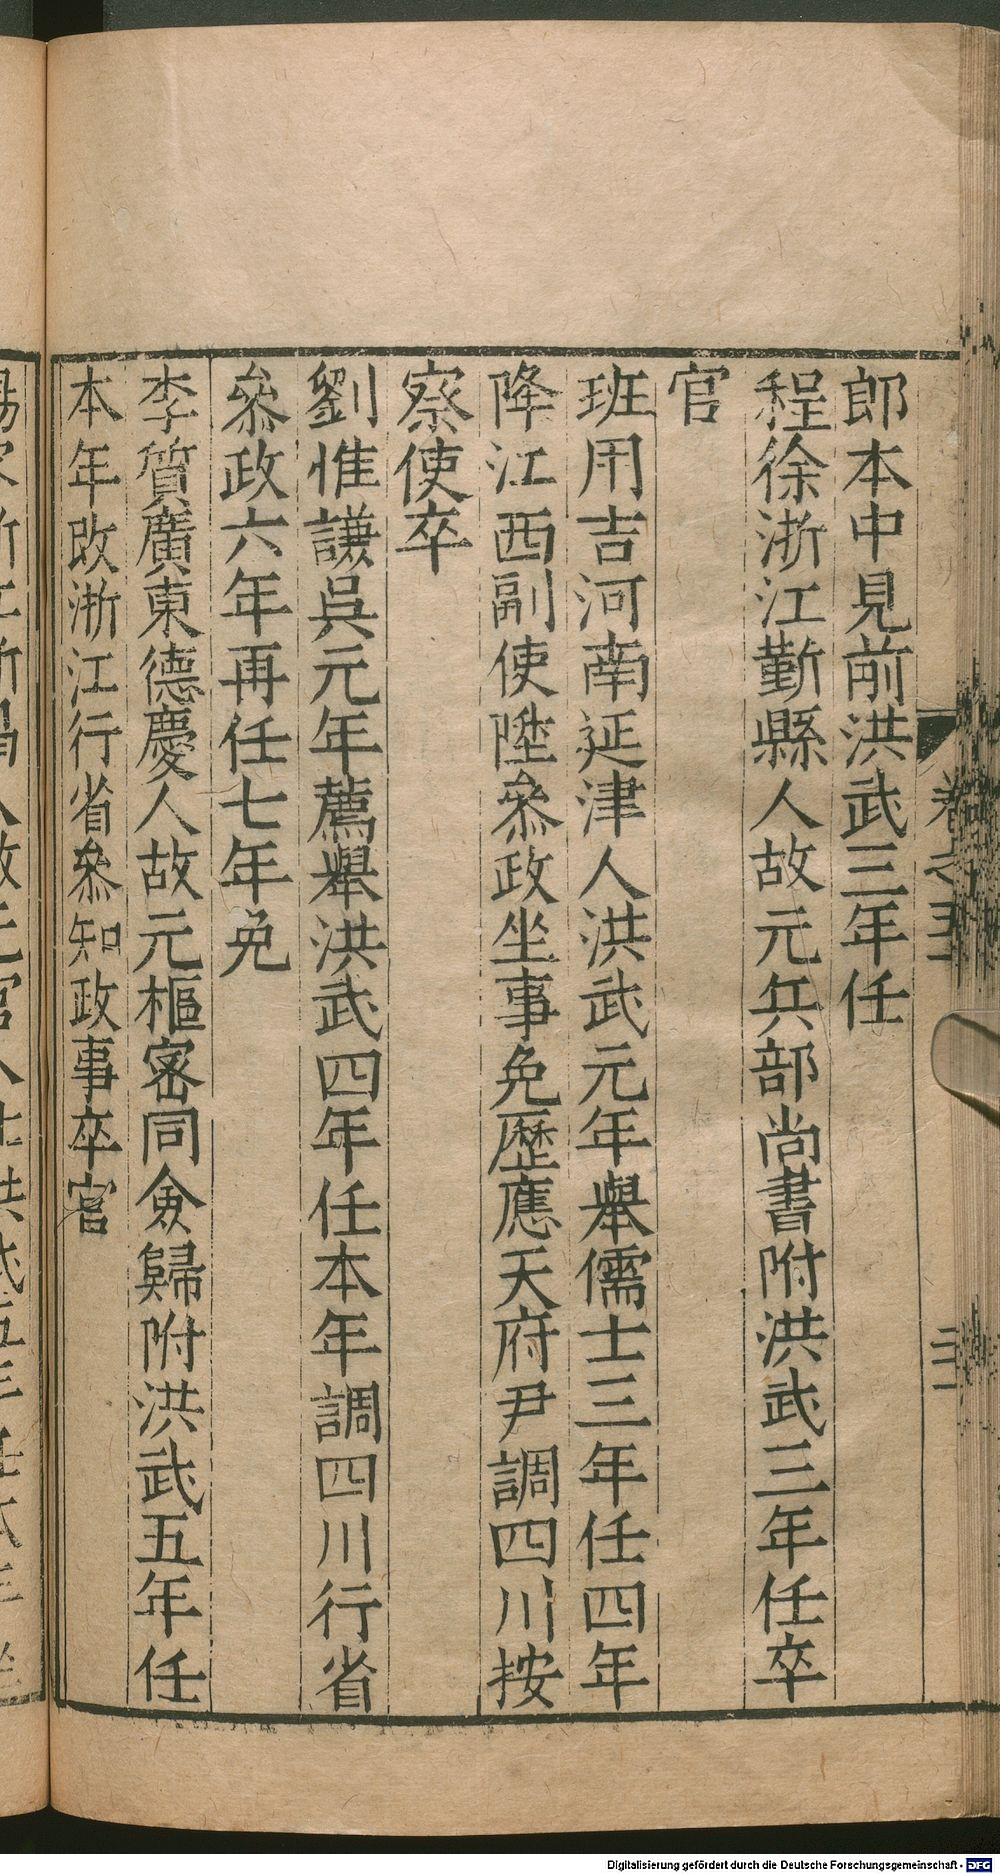 郎本中見前洪武三年任
程徐浙江鄞縣人故元兵部尚書附洪武三年任卒
官
班用吉河南延津人洪武元年舉儒士三年任四年
降江西副使陞叅政坐事免歷應天府尹調四川按
察使卒
劉惟謙吳元年薦舉洪武四年任本年調四川行省
叅政六年再任七年免
李質廣東德慶人故元樞密同僉歸附洪武五年任
本年改浙江行省叅知政事卒官
卷之
Digitalisierung gefördert durch die Deutsche Forschungsgemeinschaft - DFG